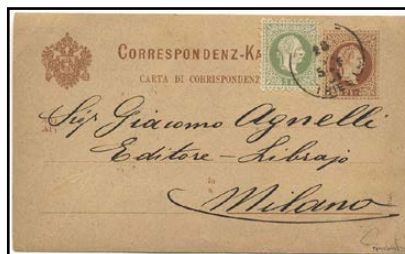 CORRESPONDENZ-KA
CARTA DI CORRISPONDENZ
Sigr Giacomo Agnelli
Editore-Librajo
in
Milano